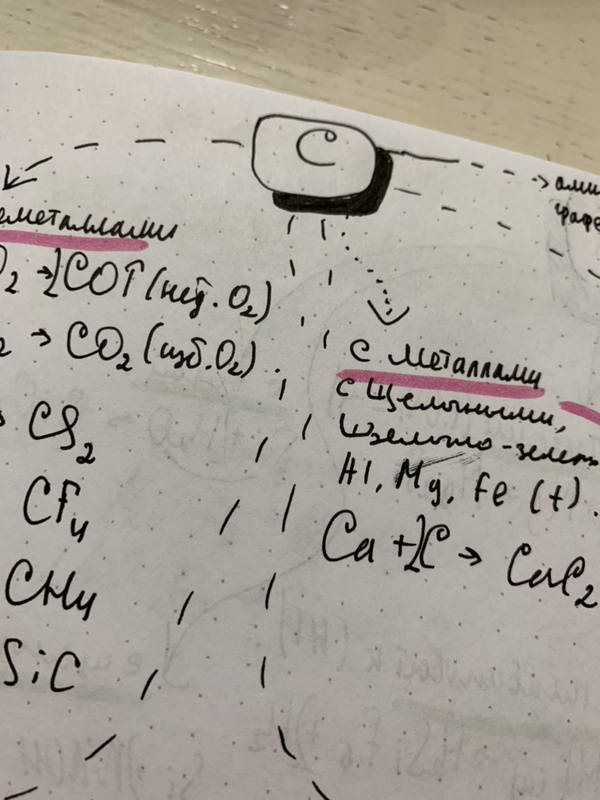 C
еметаллами
O₂ → 2CO↑ (нед. O₂)
₂ → CO₂ (изб. O₂).
CS₂
CF₄
CH₄
SiC
с металлами
с щелочными,
щелочно-зем
Al, Mg, Fe (t).
Ca + 2C → CaC₂